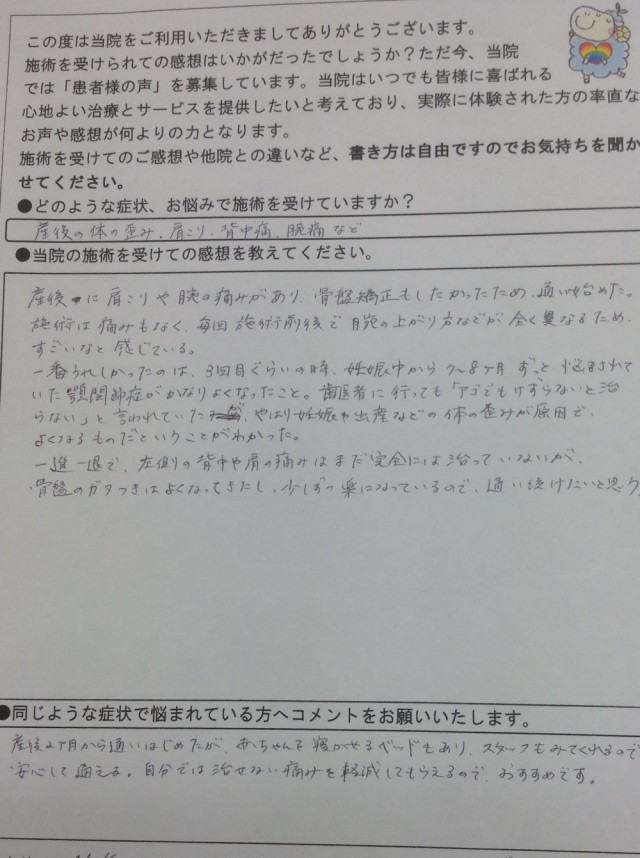 この度は当院をご利用いただきましてありがとうございます。
施術を受けられての感想はいかがだったでしょうか？ただ今、当院
では「患者様の声」を募集しています。当院はいつでも皆様に喜ばれる
心地よい治療とサービスを提供したいと考えており、実際に体験された方の率直な
お声や感想が何よりの力となります。
施術を受けてのご感想や他院との違いなど、書き方は自由ですのでお気持ちを聞か
せてください。
●どのような症状、お悩みで施術を受けていますか？
産後の体の歪み、肩こり、背中痛、腕痛など
●当院の施術を受けての感想を教えてください。
産後に肩こりや腕の痛みがあり、骨盤矯正もしたかったため、通い始めた。
施術は痛みもなく、毎回施術前後で腕の上がり方などが全く異なるため、
すごいなと感じている。
一番うれしかったのは、3回目ぐらいの時、妊娠中から7～8ヶ月ずっと悩まされて
いた顎関節症がかなりよくなったこと。歯医者に行っても「アゴでもけずらないと治
らない」と言われていたが、やはり妊娠や出産などの体の歪みが原因で、
よくなるものだということがわかった。
一進一退で、左側の背中や肩の痛みはまだ完全には治っていないが、
骨盤のガタつきはよくなってきたし、少しずつ楽になっているので、通い続けたいと思う。
●同じような症状で悩まれている方へコメントをお願いいたします。
産後2ヶ月から通いはじめたが、赤ちゃんを寝かせるベッドもあり、スタッフもみてくれるので
安心して通える。自分では治せない痛みを軽減してもらえるので、おすすめです。